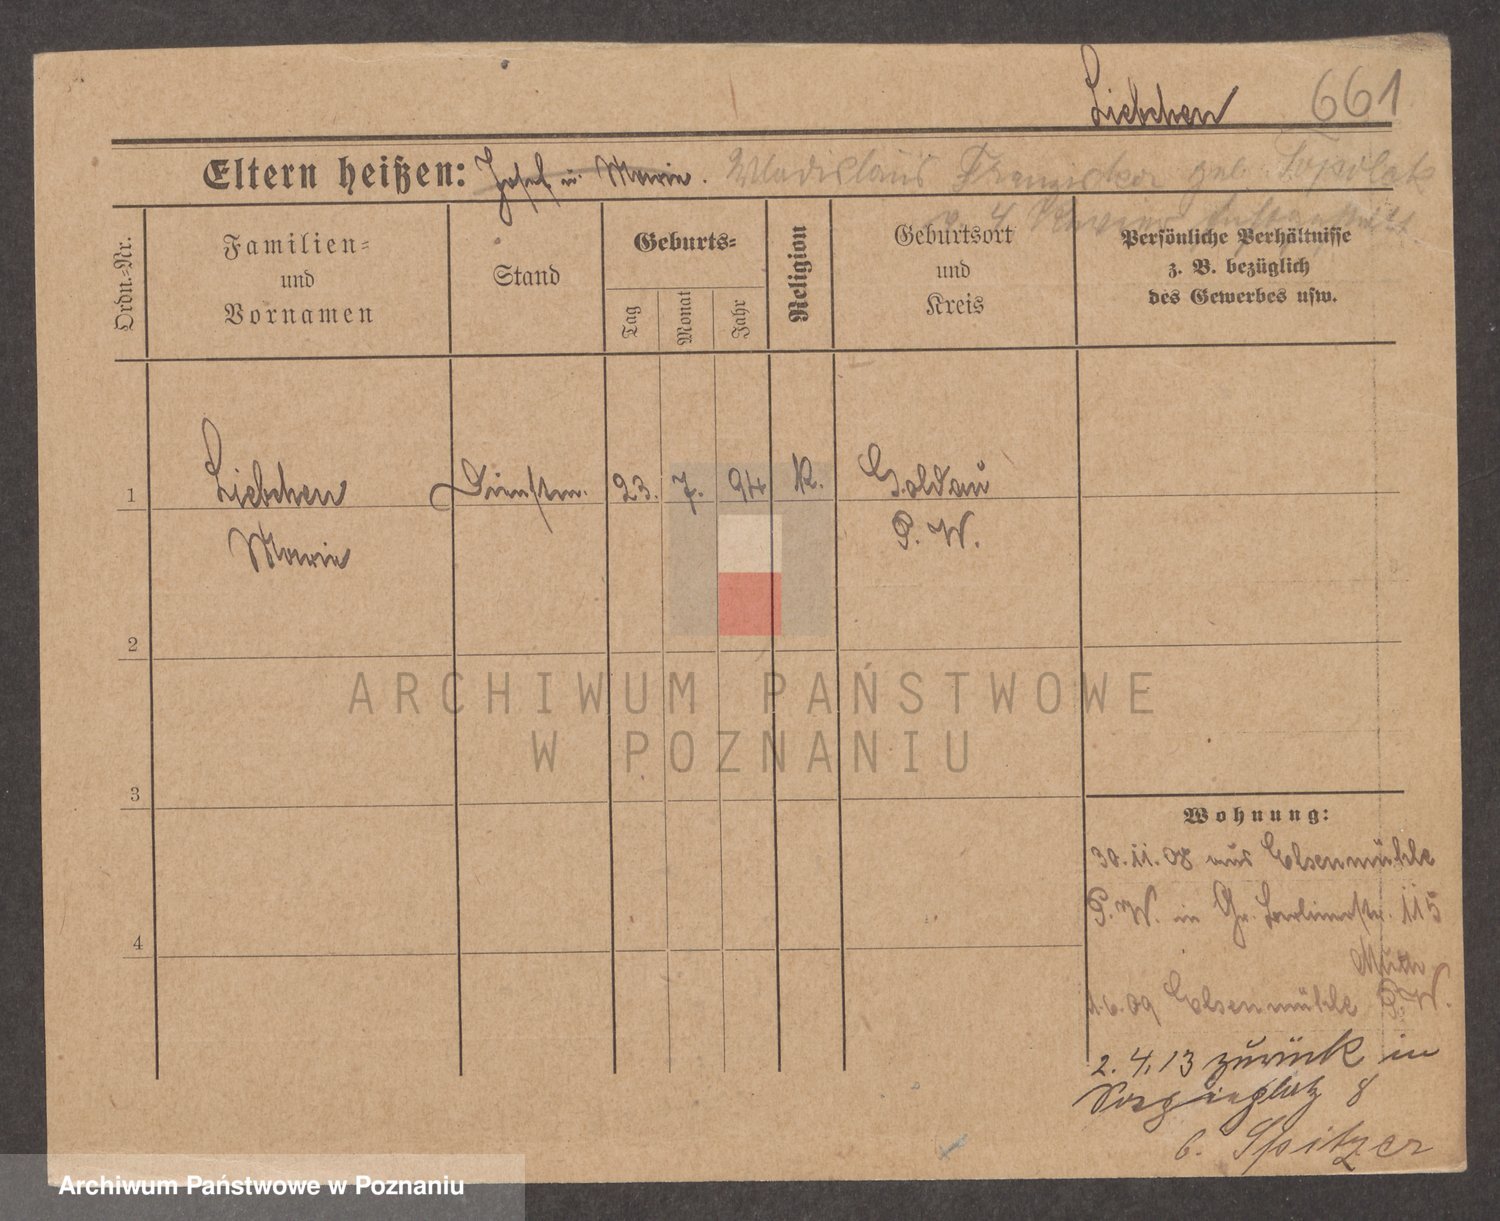 Liebchen 661
Eltern heißen: Josef u. Marie. Wladislaus Franziska geb.
Ordn.=Nr.
Familien=
und
Vornamen
Stand
Geburts=
Tag
Monat
Jahr
Religion
Geburtsort
und
Kreis
Persönliche Verhältnisse
z. B. bezüglich
des Gewerbes usw.
1 Liebchen Dienstm. 23. 7. 94 K. Goldau
Marie P. W.
2
3
4
Wohnung:
30.11.08 aus Elsenmühle
P. W. in Gr. Berlinerstr. 115
Muth
1.6.09 Elsenmühle P. W.
2.4.13 zurück in
8
b. Spitzer
ARCHIWUM PAŃSTWOWE
W POZNANIU
Archiwum Państwowe w Poznaniu